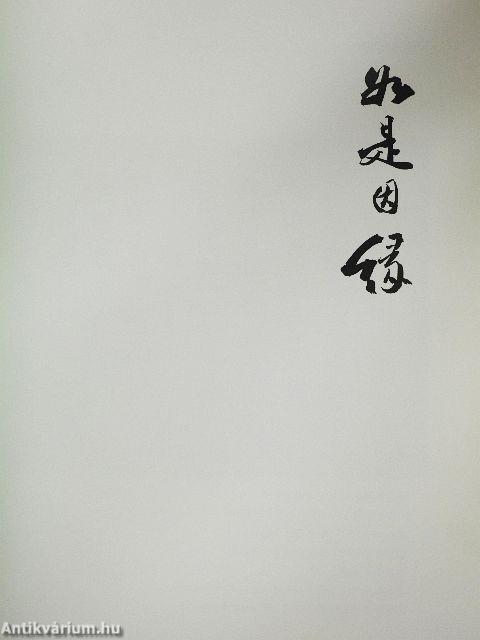 如是因緣
Antikvárium.hu